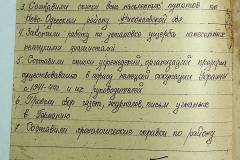 3. Составили списки всех населенных пунктов по
Ново-Одесскому району Николаевской обл.
4. Закончили работу по установке ущерба нанесенного
немецкими фашистами
5. Составили списки учреждений, организаций
существовавших в период немецкой оккупации Украины
с 1941-44г. и их руководителей
6. Провели сбор газет, журналов, писем угнанных
в Германию
7. Составили хронологические справки по району